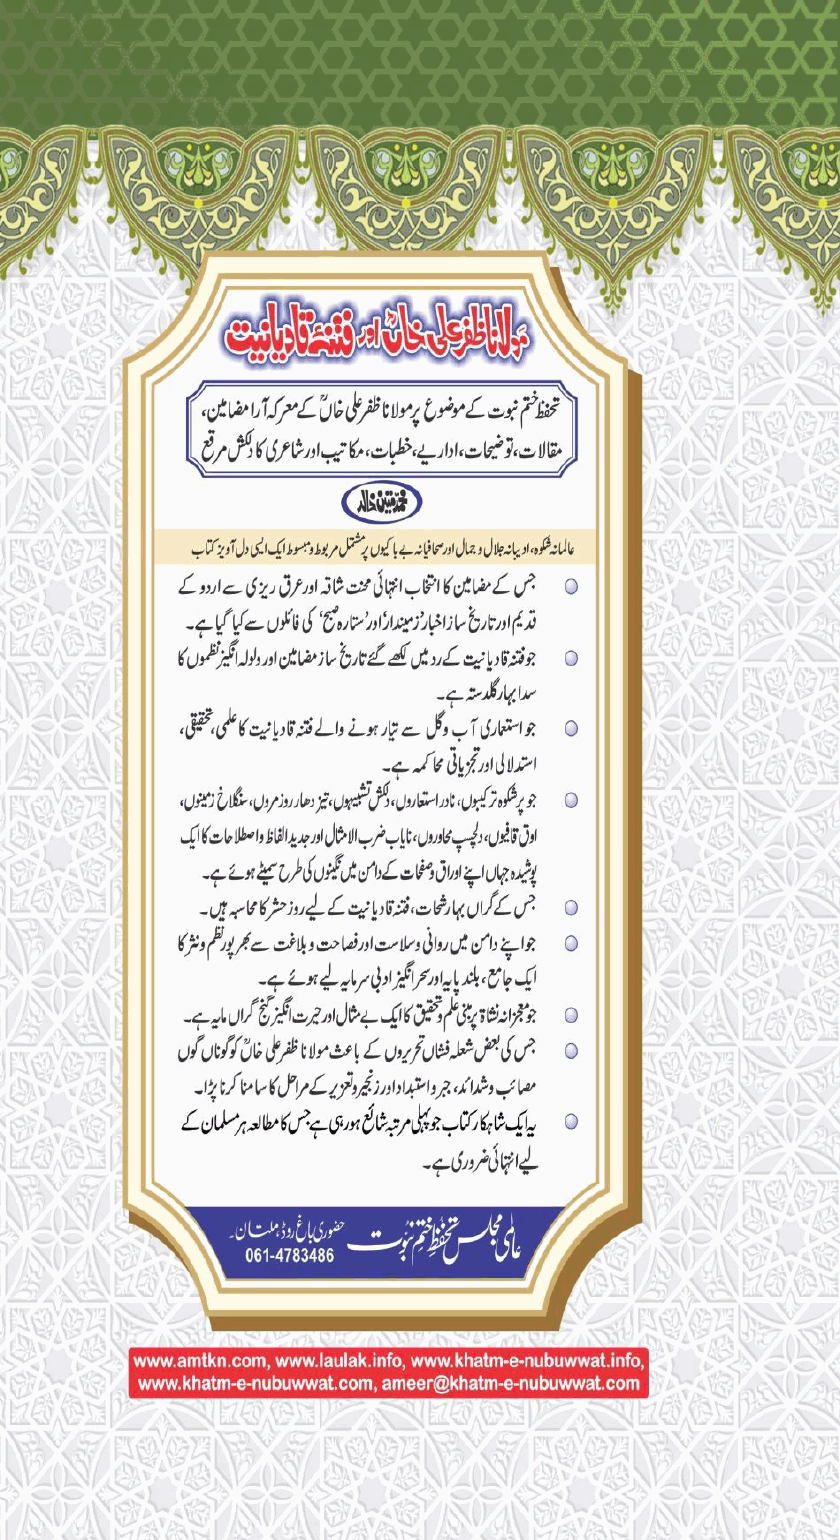 مولانا ظفر علی خاںؒ اور فتنۂ قادیانیت
تحفظ ختم نبوت کے موضوع پر مولانا ظفر علی خاںؒ کے معرکہ آرا مضامین،
مقالات، توضیحات، اداریے، خطبات، مکاتیب اور شاعری کا دلکش مرقع
محمد متین خالد
عالمانہ شکوہ، ادیبانہ جلال و جمال اور صحافیانہ بے باکیوں پر مشتمل مربوط و مبسوط ایک ایسی دل آویز کتاب
جس کے مضامین کا انتخاب انتہائی محنت شاقہ اور عرق ریزی سے اردو کے
قدیم اور تاریخ ساز اخبار ’زمیندار‘ اور ’ستارہ صبح‘ کی فائلوں سے کیا گیا ہے۔
جو فتنہ قادیانیت کے رد میں لکھے گئے تاریخ ساز مضامین اور ولولہ انگیز نظموں کا
سدا بہار گلدستہ ہے۔
جو استعماری آب و گل سے تیار ہونے والے فتنہ قادیانیت کا علمی، تحقیقی،
استدلالی اور تجزیاتی محاکمہ ہے۔
جو پرشکوہ ترکیبوں، نادر استعاروں، دلکش تشبیہوں، تیز دھار روز مروں، سنگلاخ زمینوں،
اوق قافیوں، دلچسپ محاوروں، نایاب ضرب الامثال اور جدید الفاظ و اصطلاحات کا ایک
پوشیدہ جہاں اپنے اوراق و صفحات کے دامن میں نگینوں کی طرح سمیٹے ہوئے ہے۔
جس کے گراں بہار شحات، فتنہ قادیانیت کے لیے روز حشر کا محاسبہ ہیں۔
جو اپنے دامن میں روانی و سلاست اور فصاحت و بلاغت سے بھرپور نظم و نثر کا
ایک جامع، بلند پایہ اور سحر انگیز ادبی سرمایہ لیے ہوئے ہے۔
جو معجزانہ نشاۃ پر مبنی علم و تحقیق کا ایک بے مثال اور حیرت انگیز گنج گراں مایہ ہے۔
جس کی بعض شعلہ فشاں تحریروں کے باعث مولانا ظفر علی خاںؒ کو گوناں گوں
مصائب و شدائد، جبر و استبداد اور زنجیر و تعزیر کے مراحل کا سامنا کرنا پڑا۔
یہ ایک شاہکار کتاب جو پہلی مرتبہ شائع ہو رہی ہے جس کا مطالعہ ہر مسلمان کے
لیے انتہائی ضروری ہے۔
عالمی مجلس تحفظ ختم نبوت حضوری باغ روڈ، ملتان۔
061-4783486
www.amtkn.com, www.laulak.info, www.khatm-e-nubuwwat.info,
www.khatm-e-nubuwwat.com, ameer@khatm-e-nubuwwat.com